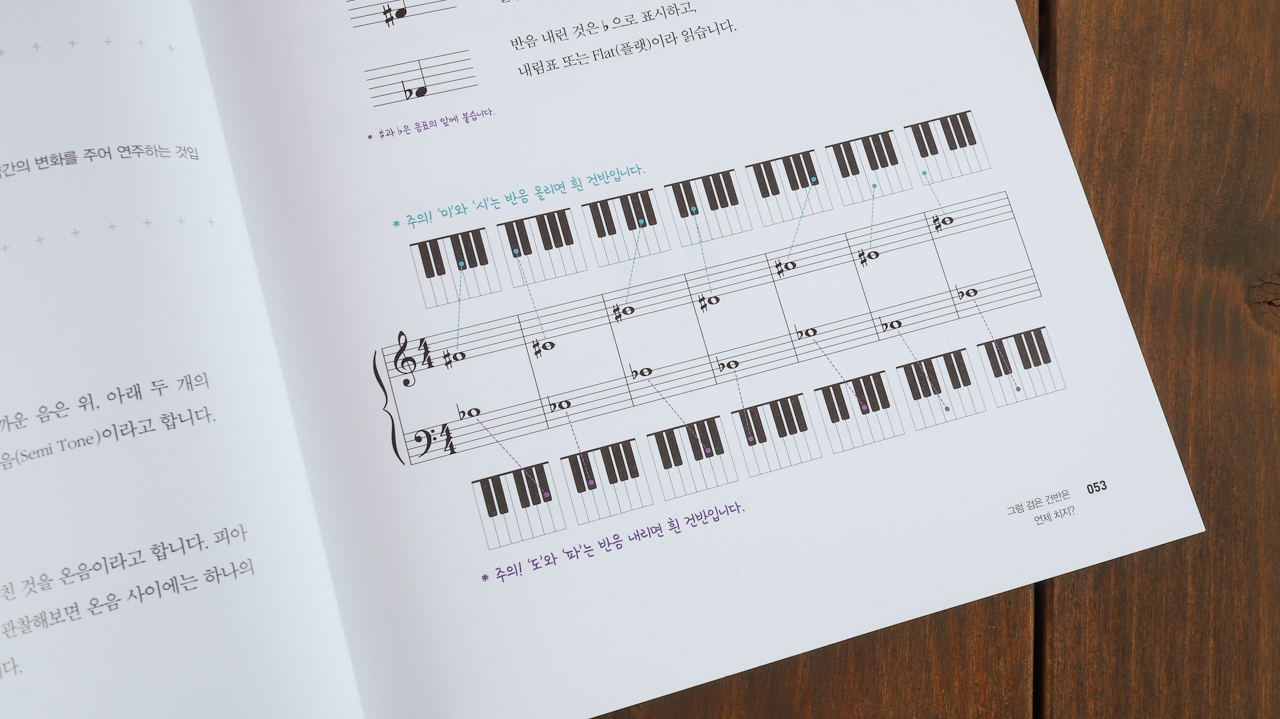 간의 변화를 주어 연주하는 것입
까운 음은 위, 아래 두 개의
음(Semi Tone)이라고 합니다.
친 것을 온음이라고 합니다. 피아
관찰해보면 온음 사이에는 하나의
다.
반음 내린 것은 ♭으로 표시하고,
내림표 또는 Flat(플랫)이라 읽습니다.
* #과 ♭은 음표의 앞에 붙습니다.
* 주의! '미'와 '시'는 반음 올리면 흰 건반입니다.
4
4
4
4
* 주의! '도'와 '파'는 반음 내리면 흰 건반입니다.
그럼 검은 건반은
언제 치지?
053